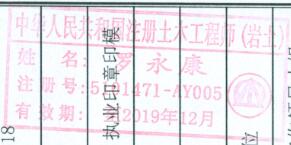 中华人民共和国注册土木工程师(岩土)
姓 名: 罗永康
注册号: 5101471-AY005
有效期: 2019年12月
执业印章印模
位
18